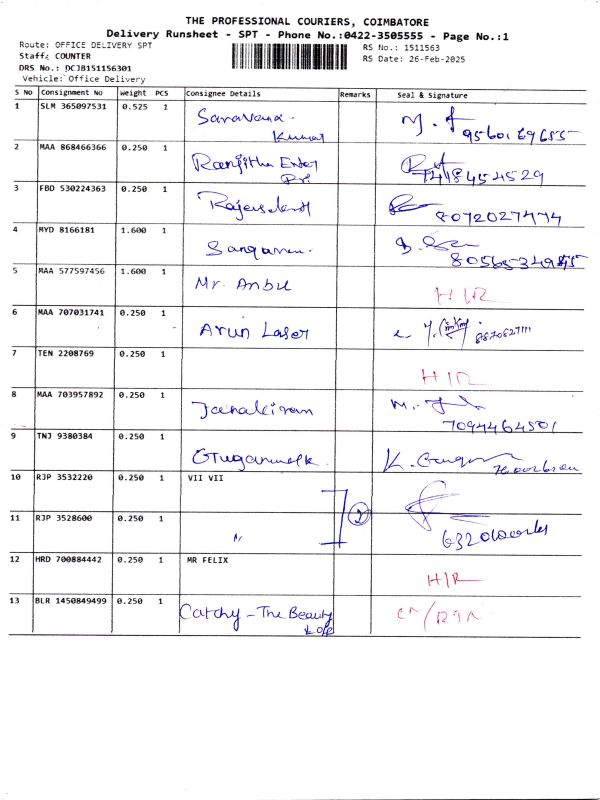 THE PROFESSIONAL COURIERS, COIMBATORE
Delivery Runsheet - SPT - Phone No.:0422-3505555 - Page No.:1
Route: OFFICE DELIVERY SPT
RS No.: 1511563
Staff: COUNTER
RS Date: 26-Feb-2025
DRS No.: DCJB151156301
Vehicle: Office Delivery
S No Consignment No Weight PCS Consignee Details Remarks Seal & Signature
1 SLM 365097531 0.525 1 Saravana Kumar
2 MAA 868466366 0.250 1 Ranjitha 7418454529
3 FBD 530224363 0.250 1 8072027474
4 MYD 8166181 1.600 1
5 MAA 577597456 1.600 1 Mr. Anbu H/R
6 MAA 707031741 0.250 1 Arun Laser
7 TEN 2208769 0.250 1 H/R
8 MAA 703957892 0.250 1 Janakiram 7094464501
9 TNJ 9380384 0.250 1
10 RJP 3532220 0.250 1 VII VII
2
11 RJP 3528600 0.250 1 〃
12 HRD 700884442 0.250 1 MR FELIX H/R
13 BLR 1450849499 0.250 1 Catchy - The Beauty